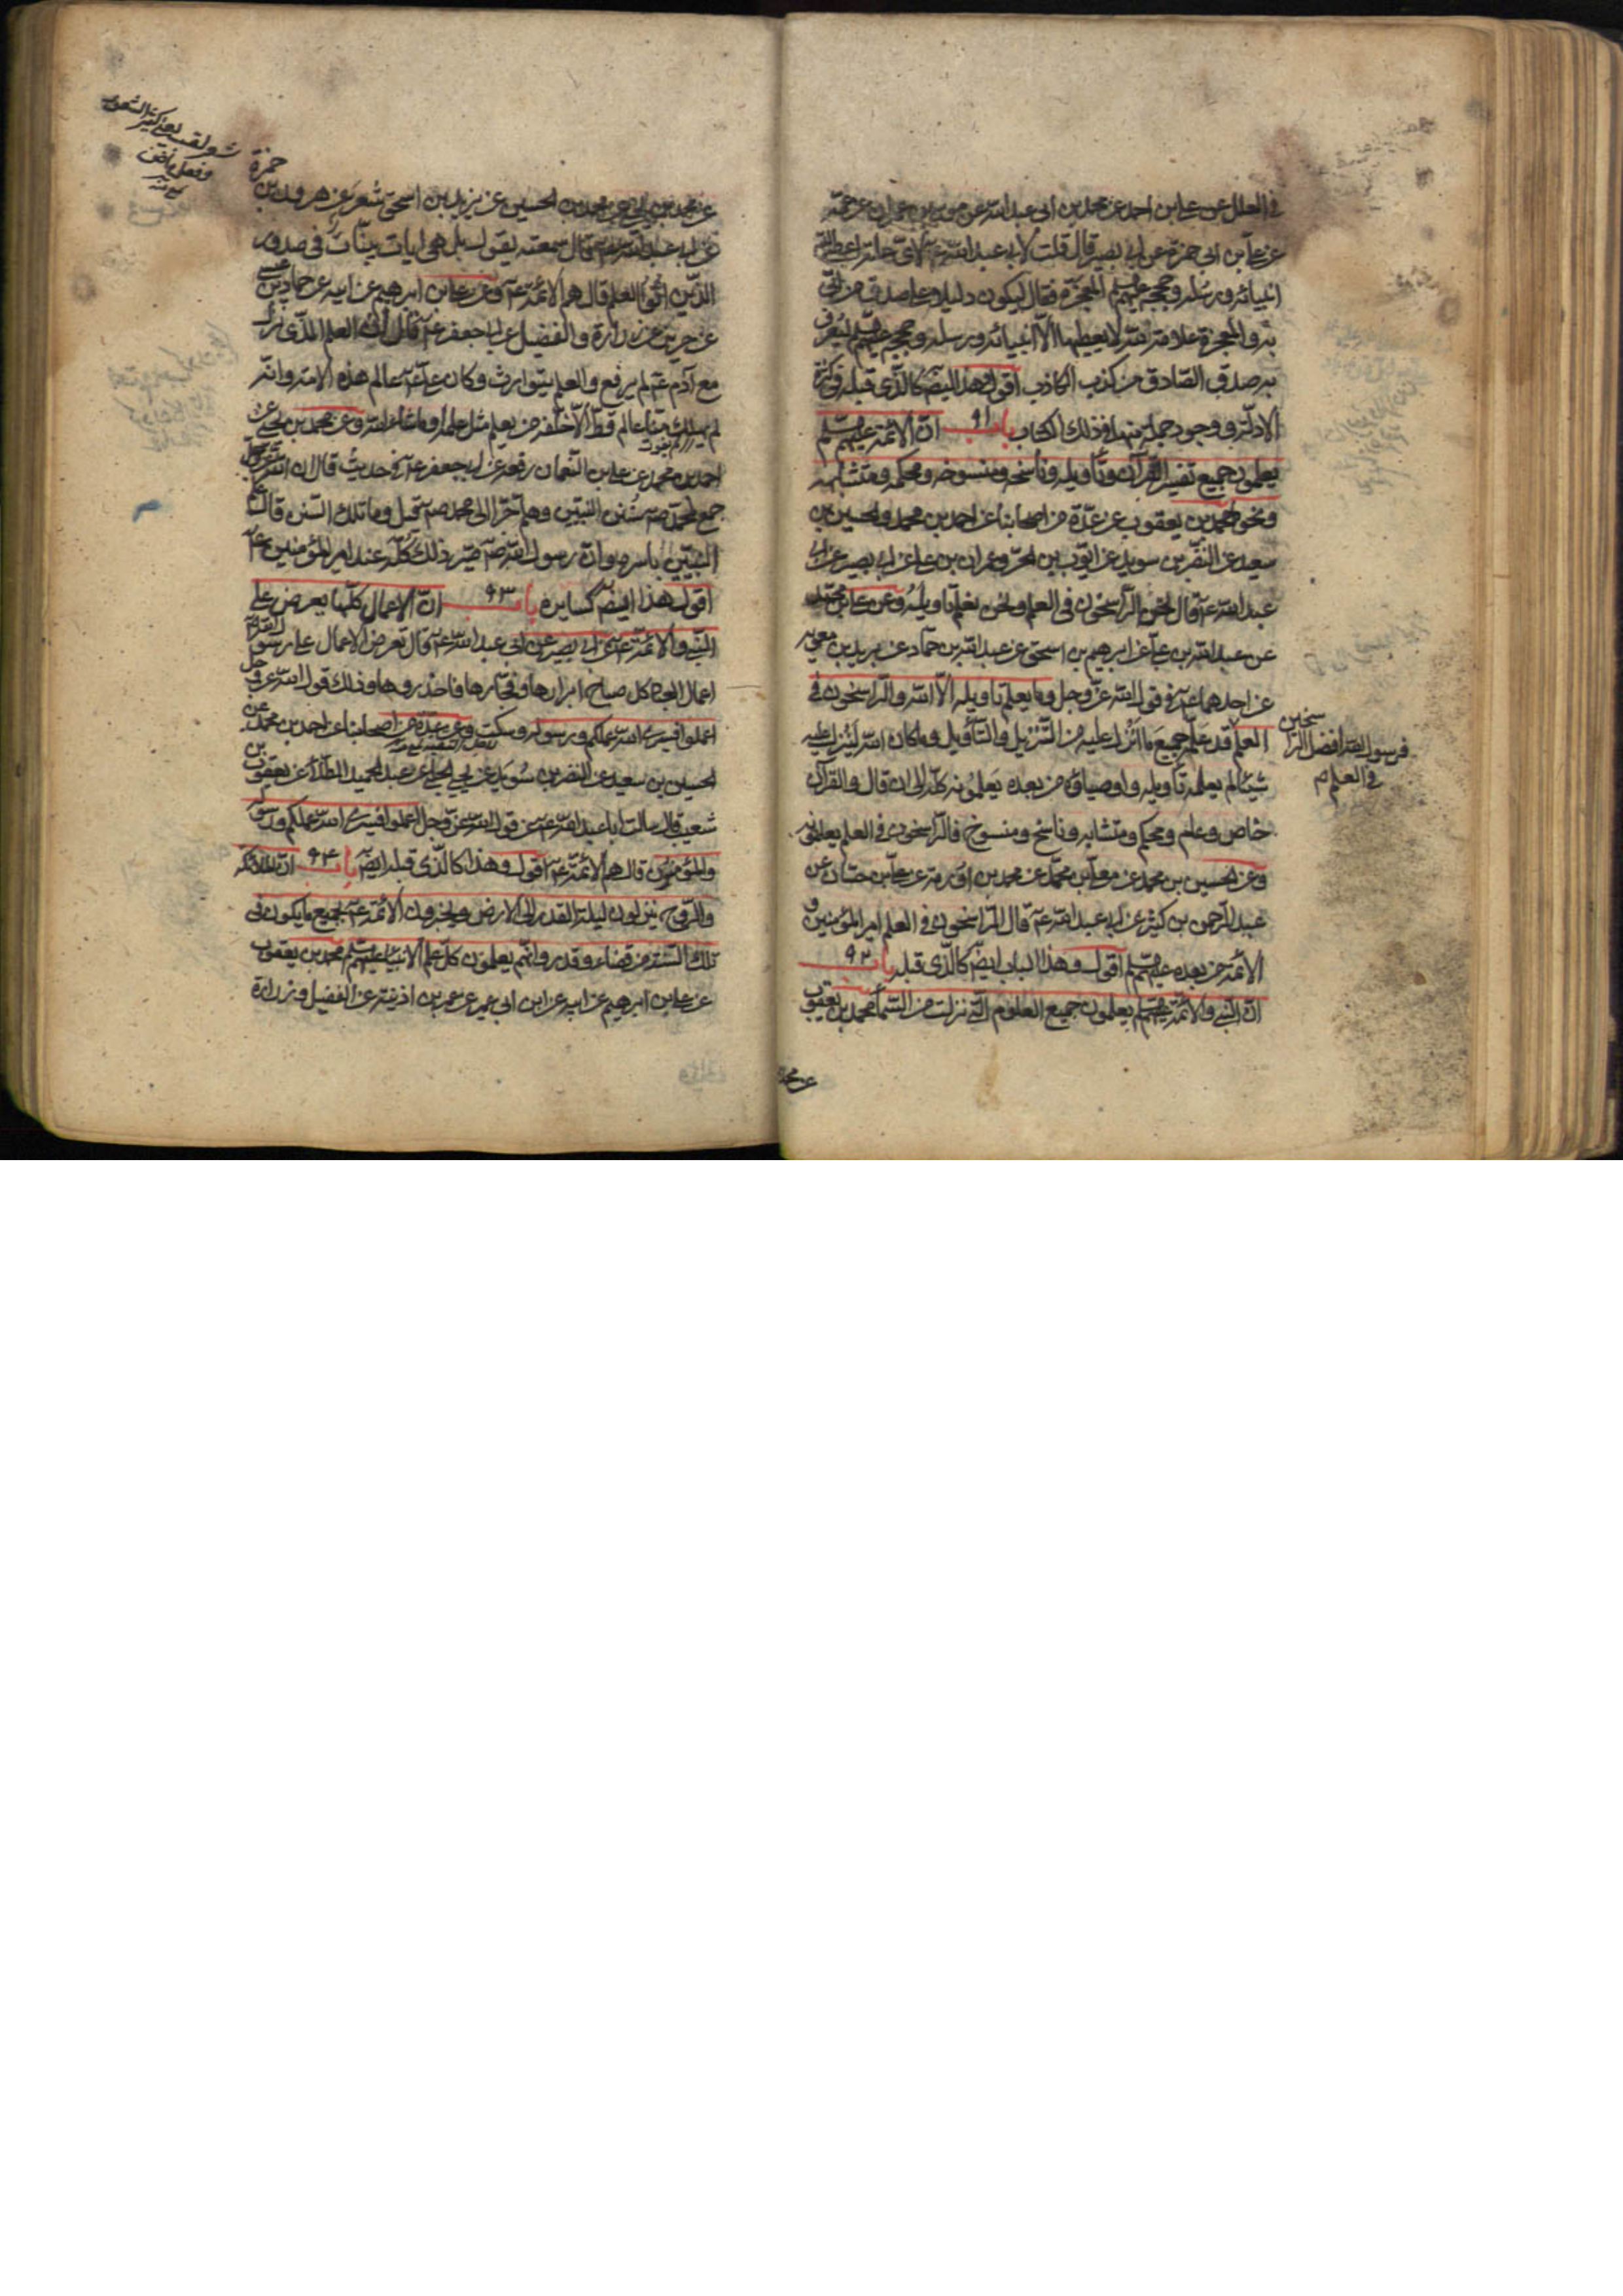 في العلل عن علي بن احمد عن محمد بن ابي عبد الله عن موسى بن عمران عن عمّه
عن علي بن ابي حمزة عن ابي بصير قال قلت لابي عبد الله عم لاي علة اعطى الله
انبيائه ورسله وحججه عليهم المعجزة فقال ليكون دليلا على صدق من اتى
به والمعجزة علامة لله لا يعطيها الا انبيائه ورسله وحججه عليهم ليعرف
به صدق الصادق من كذب الكاذب اقول وهذا ايضا كالذي قبله في كثرة
الادلة ووجود جملة منها في ذلك الكتاب باب ٩١ ان الائمة عليهم
يعلمون جميع تفسير القرآن وتأويله وناسخه ومنسوخه ومحكمه ومتشابهه
ونحو محمد بن يعقوب عن عدة من اصحابنا عن احمد بن محمد والحسين بن
سعيد عن النضر بن سويد عن ايوب بن الحر وعمران بن علي عن ابي بصير عن ابي
عبد الله عم قال نحن الراسخون في العلم ونحن نعلم تأويله وعن علي بن محمد
عن عبد الله بن علي عن ابرهيم بن اسحق عن عبد الله بن حماد عن بريد بن معوية
عن احدهما عم في قول الله عز وجل وما يعلم تأويله الا الله والراسخون في
فرسول الله افضل الراسخين
في العلم م
العلم قد علم جميع ما انزل عليه من التنزيل والتأويل وما كان الله لينزل عليه
شيئا لم يعلمه تأويله واوصياؤه من بعده يعلمونه كله الى ان قال والقرآن
خاص وعام ومحكم ومتشابه وناسخ ومنسوخ فالراسخون في العلم يعلمونه
وعن الحسين بن محمد عن معلى بن محمد عن محمد بن اورمة عن علي بن حسان عن
عبد الرحمن بن كثير عن ابي عبد الله عم قال الراسخون في العلم امير المؤمنين و
الائمة من بعده عليهم اقول وهذا الباب ايضا كالذي قبله باب ٩٢
ان النبي والائمة عليهم يعلمون جميع العلوم التي نزلت من السماء محمد بن يعقوب
عن محمد
شعر لقب
حمزة
عن محمد بن يحيى عن محمد بن الحسين عن يزيد بن اسحق شعر عن هرون بن
عن ابي عبد الله عم قال سمعته يقول بل هي ايات بينات في صدور
الذين اوتوا العلم قال هم الائمة عم وعن علي بن ابرهيم عن ابيه عن حماد بن عيسى
عن حريز عن زرارة والفضيل عن ابي جعفر عم قال ان العلم الذي نزل
مع آدم عم لم يرفع والعلم يتوارث وكان علي عم عالم هذه الامة وانه
لم يهلك منا عالم قط الا خلفه من يعلم مثل علمه او ما شاء الله وعن محمد بن يحيى عن
احمد بن محمد عن علي بن النعمان رفعه عن ابي جعفر عم في حديث قال ان الله عز وجل
جمع لمحمد ص سنن النبيين وهلم جرا الى محمد ص قيل وما تلك السنن قال علم
النبيين باسره وان رسول الله ص صير ذلك كله عند امير المؤمنين عم
اقول هذا ايضا كسايره باب ٩٣ ان الاعمال كلها يعرض على
النبي والائمة عم عن ابي بصير عن ابي عبد الله عم قال تعرض الاعمال على رسول الله ص
اعمال العباد كل صباح ابرارها وفجارها فاحذروها وذلك قول الله عز وجل
اعملوا فسيرى الله عملكم ورسوله وسكت وعن عدة من اصحابنا عن احمد بن محمد عن
الحسين بن سعيد عن النضر بن سويد عن يحيى الحلبي عن عبد الحميد الطائي عن يعقوب بن
شعيب قال سألت ابا عبد الله عم عن قول الله عز وجل اعملوا فسيرى الله عملكم ورسوله
والمؤمنون قال هم الائمة عم اقول وهذا كالذي قبله ايضا باب ٩٤ ان الملائكة
والروح ينزلون ليلة القدر الى الارض ويخبرون الائمة عم بجميع ما يكون في
تلك السنة من قضاء وقدر وانهم يعلمون كل علم الانبياء عليهم محمد بن يعقوب
عن علي بن ابرهيم عن ابيه عن ابن ابي عمير عن عمر بن اذينة عن الفضيل وزرارة